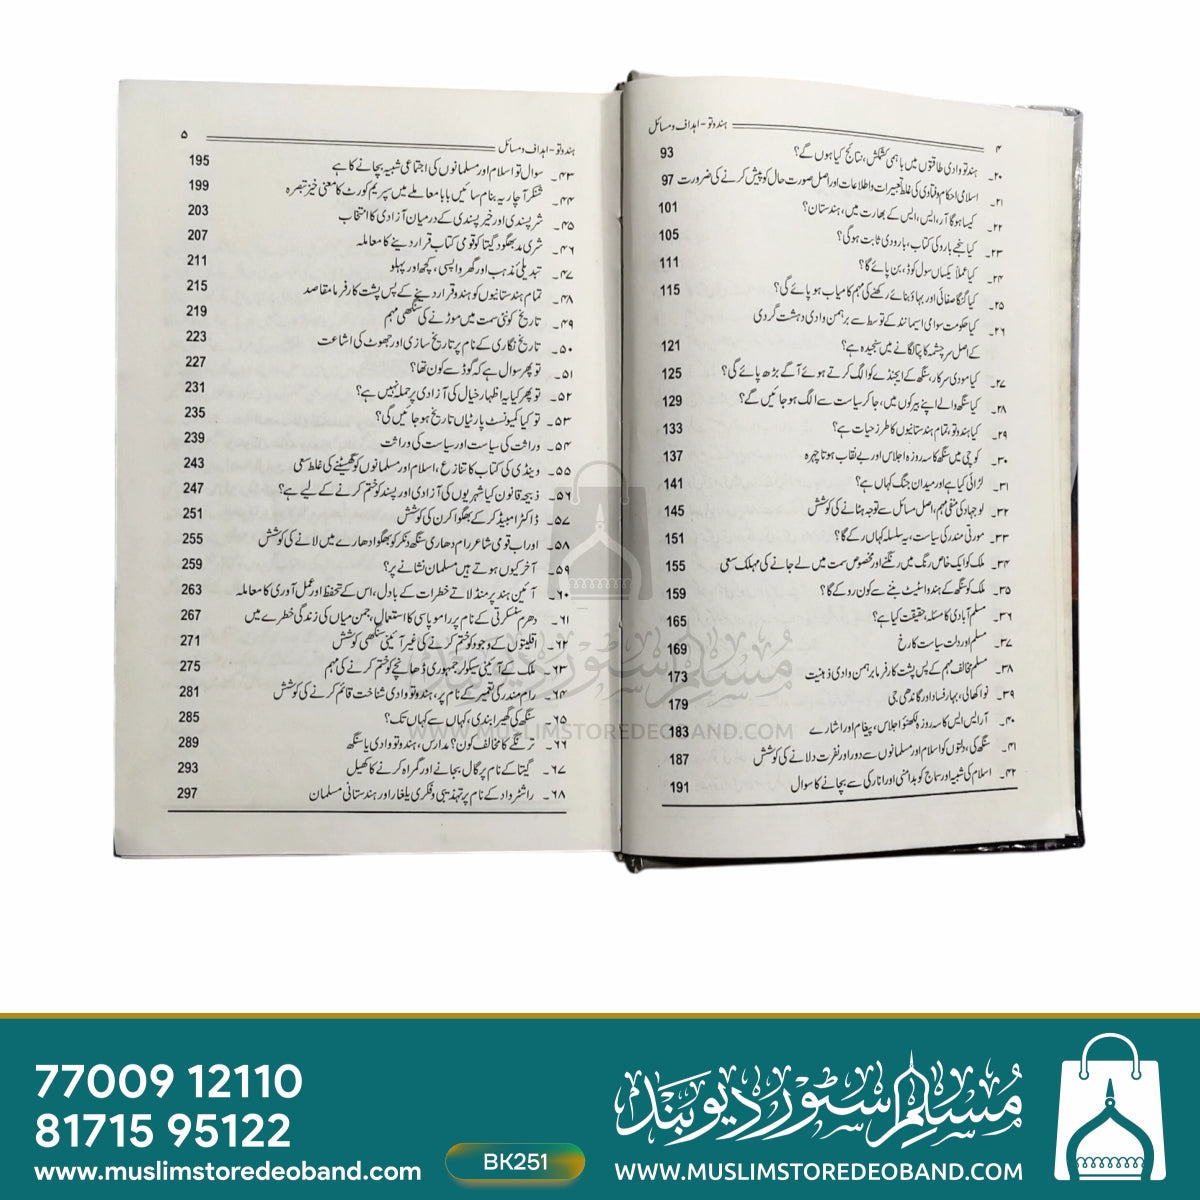 ۴ ہندوتو - اہداف و مسائل
۲۰۔ ہندتو وادی طاقتوں میں باہمی کشمکش، نتائج کیا ہوں گے؟ 93
۲۱۔ اسلامی احکام و فتاوی کی غلط تعبیرات و اطلاعات اور اصل صورت حال کو پیش کرنے کی ضرورت 97
۲۲۔ کیسا ہوگا آر، ایس، ایس کے بھارت میں، ہندستان؟ 101
۲۳۔ کیا سنجے بارو کی کتاب، بارودی ثابت ہوگی؟ 105
۲۴۔ کیا عملاً یکساں سول کوڈ، بن پائے گا؟ 111
۲۵۔ کیا گنگا صفائی اور بہاؤ بنائے رکھنے کی مہم کامیاب ہو پائے گی؟ 115
۲۶۔ کیا حکومت سوامی اسیمانند کے توسط سے برہمن وادی دہشت گردی
کے اصل سرچشمہ کا پتا لگانے میں سنجیدہ ہے؟ 121
۲۷۔ کیا مودی سرکار، سنگھ کے ایجنڈے کو الگ کرتے ہوئے آگے بڑھ پائے گی؟ 125
۲۸۔ کیا سنگھ والے اپنے بیرکوں میں، جا کر سیاست سے الگ ہو جائیں گے؟ 129
۲۹۔ کیا ہندوتو، تمام ہندستانیوں کا طرز حیات ہے؟ 133
۳۰۔ کوچی میں سنگھ کا سہ روزہ اجلاس اور بے نقاب ہوتا چہرہ 137
۳۱۔ لڑائی کیا ہے اور میدان جنگ کہاں ہے؟ 141
۳۲۔ لو جہاد کی منفی مہم، اصل مسائل سے توجہ ہٹانے کی کوشش 145
۳۳۔ مورتی مندر کی سیاست، یہ سلسلہ کہاں رکے گا؟ 151
۳۴۔ ملک کو ایک خاص رنگ میں رنگنے اور مخصوص سمت میں لے جانے کی مہلک سعی 155
۳۵۔ ملک کو سنگھ کے ہندو اسٹیٹ بننے سے کون روکے گا؟ 159
۳۶۔ مسلم آبادی کا مسئلہ، حقیقت کیا ہے؟ 165
۳۷۔ مسلم اور دلت سیاست کا رخ 169
۳۸۔ مسلم مخالف مہم کے پس پشت کارفرما برہمن وادی ذہنیت 173
۳۹۔ نواکھالی، بہار فساد اور گاندھی جی 179
۴۰۔ آر ایس ایس کا سہ روزہ لکھنؤ اجلاس، پیغام اور اشارے 183
۴۱۔ سنگھ کی، دلتوں کو اسلام اور مسلمانوں سے دور اور نفرت دلانے کی کوشش 187
۴۲۔ اسلام کی شبیہ اور سماج کو بدامنی اور انارکی سے بچانے کا سوال 191
ہندوتو - اہداف و مسائل ۵
۴۳۔ سوال تو اسلام اور مسلمانوں کی اجتماعی شبیہ بچانے کا ہے 195
۴۴۔ شنکر آچاریہ بنام سائیں بابا معاملے میں سپریم کورٹ کا معنی خیز تبصرہ 199
۴۵۔ شرپسندی اور خیر پسندی کے درمیان آزادی کا انتخاب 203
۴۶۔ شری مد بھگود گیتا کو قومی کتاب قرار دینے کا معاملہ 207
۴۷۔ تبدیلی مذہب اور گھر واپسی، کچھ اور پہلو 211
۴۸۔ تمام ہندستانیوں کو ہندو قرار دینے کے پس پشت کارفرما مقاصد 215
۴۹۔ تاریخ کو نئی سمت میں موڑنے کی سنگھی مہم 219
۵۰۔ تاریخ نگاری کے نام پر تاریخ سازی اور جھوٹ کی اشاعت 223
۵۱۔ تو پھر سوال ہے کہ گوڈسے کون تھا؟ 227
۵۲۔ تو پھر کیا یہ اظہار خیال کی آزادی پر حملہ نہیں ہے؟ 231
۵۳۔ تو کیا کمیونسٹ پارٹیاں تاریخ ہو جائیں گی؟ 235
۵۴۔ وراثت کی سیاست اور سیاست کی وراثت 239
۵۵۔ وینڈی کی کتاب کا تنازع، اسلام اور مسلمانوں کو گھسیٹنے کی غلط سعی 243
۵۶۔ ذبیحہ قانون کیا شہریوں کی آزادی اور پسند کو ختم کرنے کے لیے ہے؟ 247
۵۷۔ ڈاکٹر امبیڈکر کے بھگوا کرن کی کوشش 251
۵۸۔ اور اب قومی شاعر رام دھاری سنگھ دنکر کو بھگوا دھارے میں لانے کی کوشش 255
۵۹۔ آخر کیوں ہوتے ہیں مسلمان نشانے پر؟ 259
۶۰۔ آئین ہند پر منڈلاتے خطرات کے بادل، اس کے تحفظ اور عمل آوری کا معاملہ 263
۶۱۔ دھرم سنسکرتی کے نام پر راموپاسی کا استعمال، جمن میاں کی زندگی خطرے میں 267
۶۲۔ اقلیتوں کے وجود کو ختم کرنے کی غیر آئینی سنگھی کوشش 271
۶۳۔ ملک کے آئینی سیکولر جمہوری ڈھانچے کو ختم کرنے کی مہم 275
۶۴۔ رام مندر کی تعمیر کے نام پر، ہندوتو وادی شناخت قائم کرنے کی کوشش 281
۶۵۔ سنگھ کی گھیرا بندی، کہاں سے کہاں تک؟ 285
۶۶۔ ترنگے کا مخالف کون؟ مدارس، ہندوتو وادی یا سنگھ 289
۶۷۔ گیتا کے نام پر گال بجانے اور گمراہ کرنے کا کھیل 293
۶۸۔ راشٹرواد کے نام پر تہذیبی و فکری یلغار اور ہندستانی مسلمان 297
مسلم سٹور دیوبند
WWW.MUSLIMSTOREDEOBAND.COM
77009 12110
81715 95122
www.muslimstoredeoband.com
BK251
مسلم سٹور دیوبند
WWW.MUSLIMSTOREDEOBAND.COM